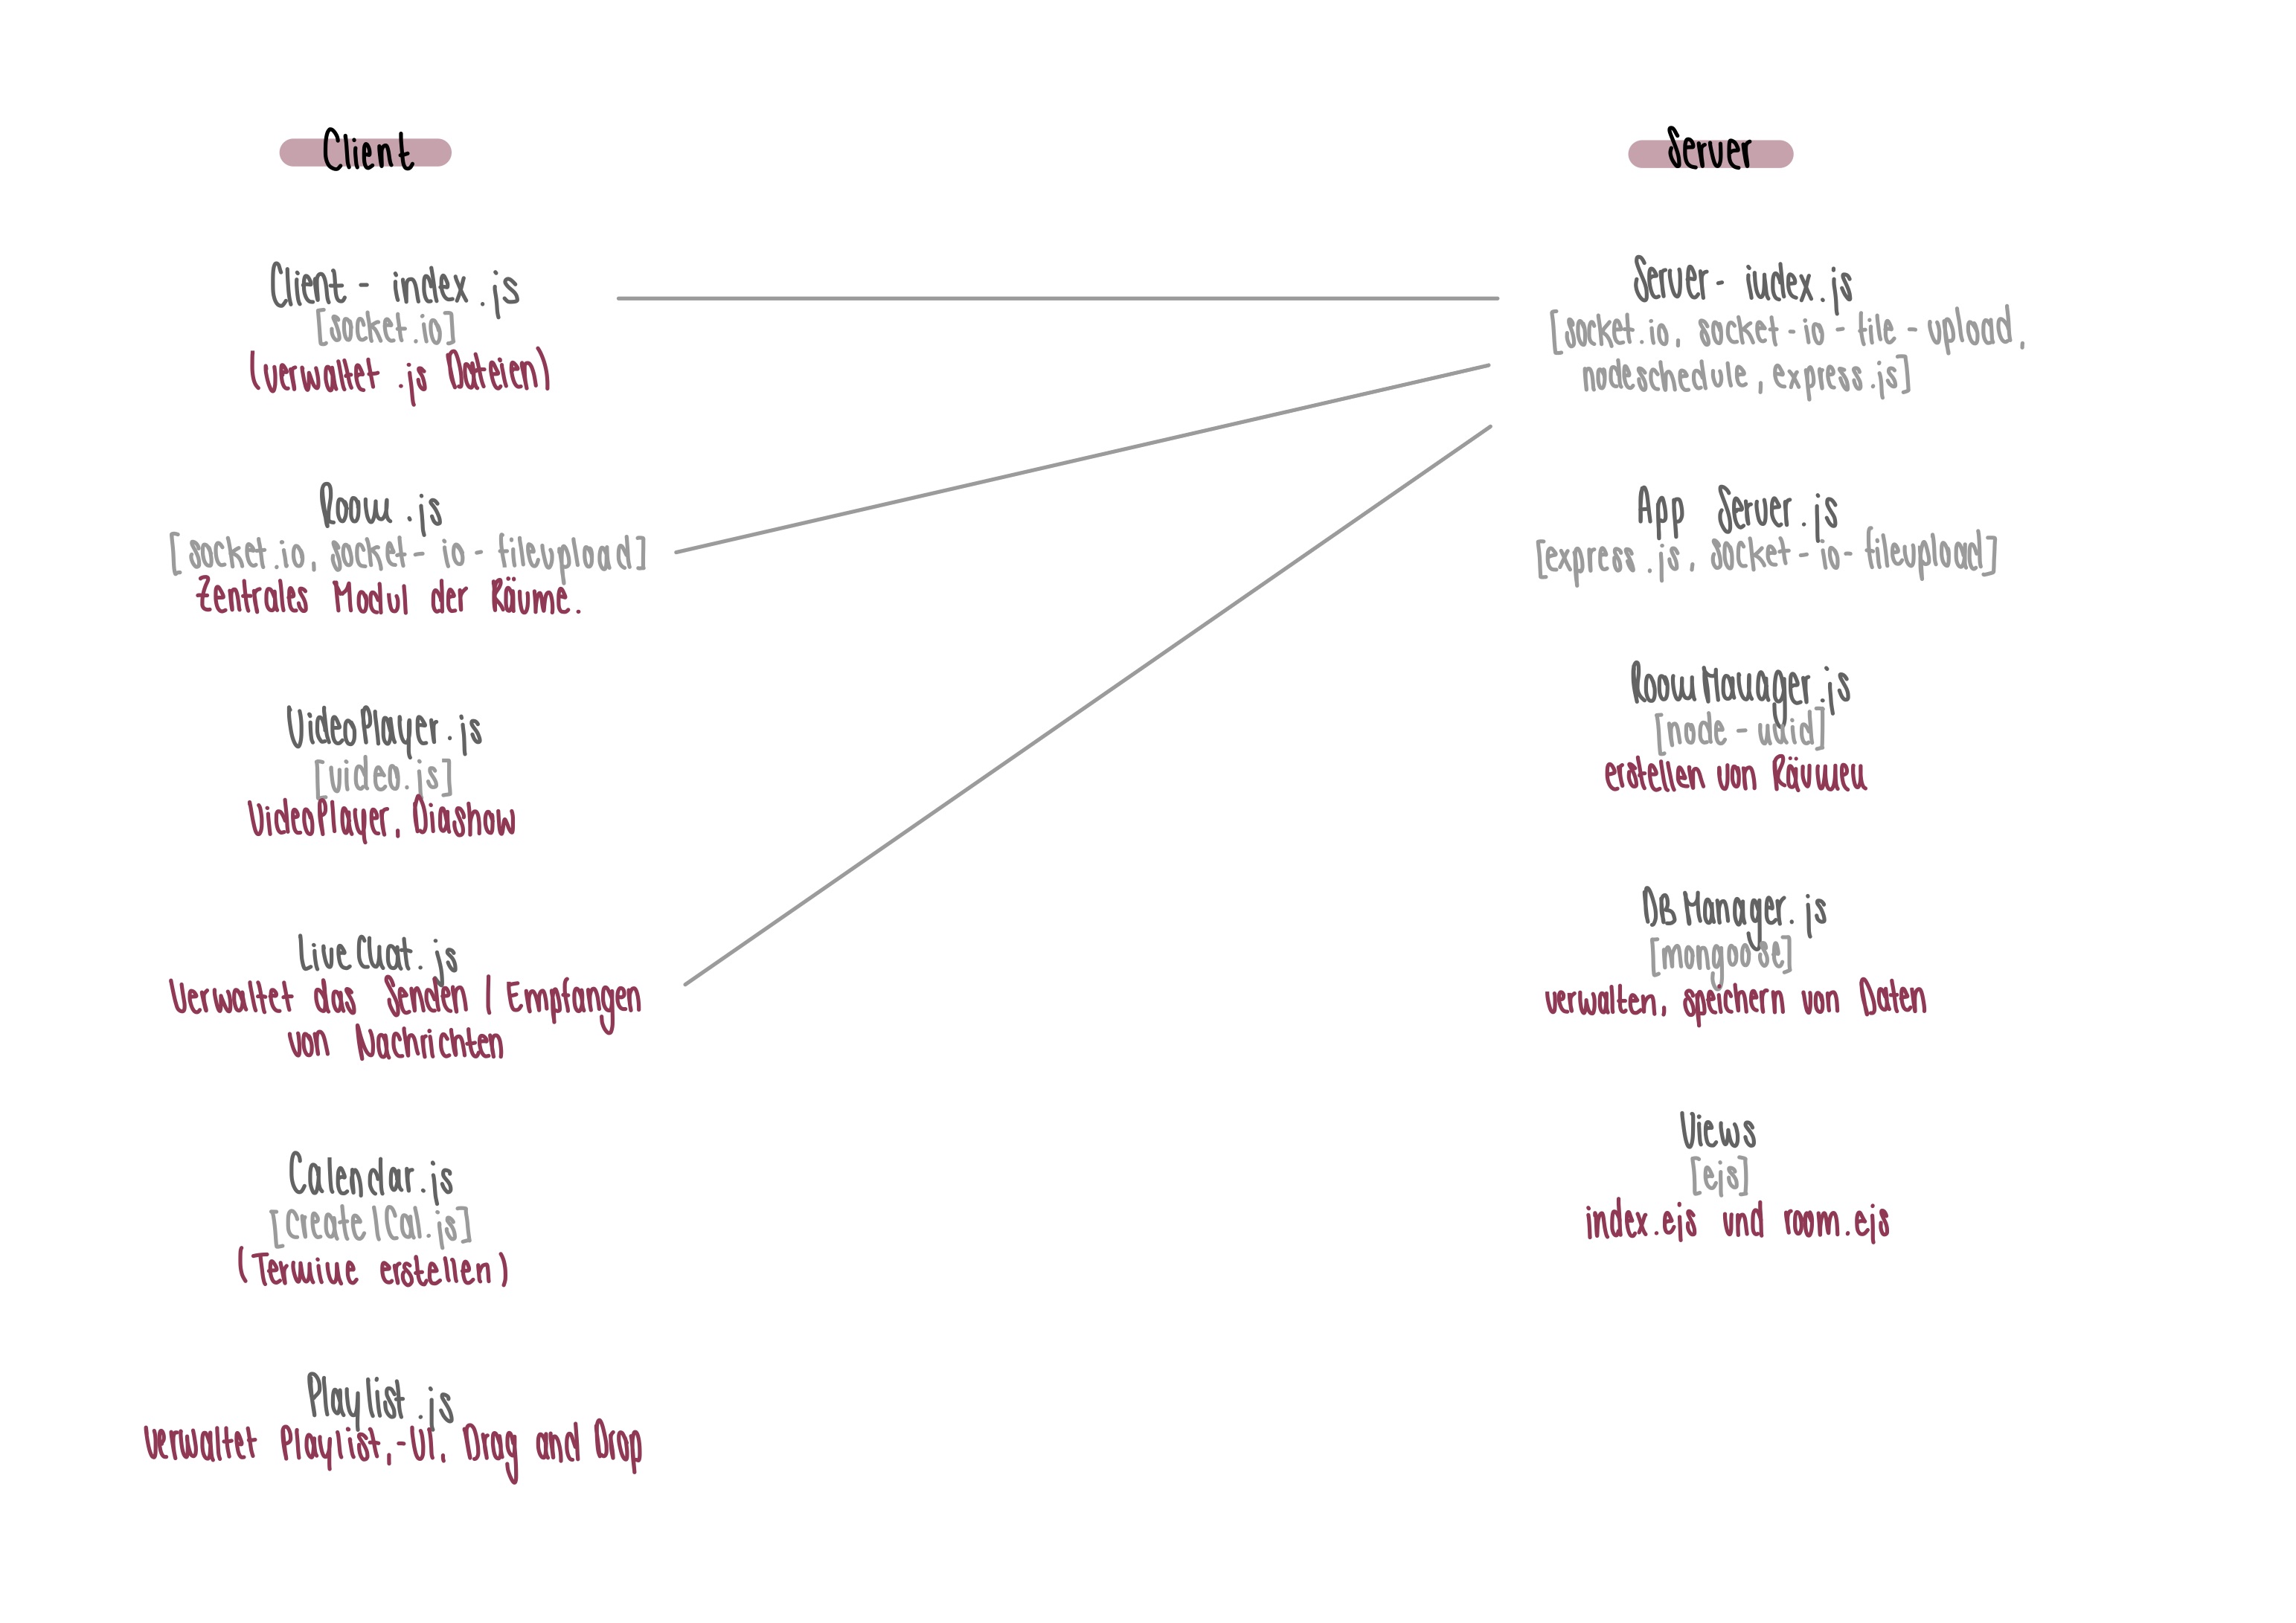 Client
Client - index.js
[socket.io]
(verwaltet .js Dateien)
Room.js
[socket.io, socket-io-fileupload]
Zentrales Modul der Räume.
VideoPlayer.js
[video.js]
VideoPlayer, Diashow
LiveChat.js
Verwaltet das Senden | Empfangen
von Nachrichten
Calendar.js
[createICal.js]
(Termine erstellen)
Playlist.js
verwaltet Playlist,-UI, Drag and Drop
Server
Server-index.js
[socket.io, socket-io-file-upload,
nodeschedule, express.js]
App Server.js
[express.js, socket-io-fileupload]
RoomManager.js
[node-uuid]
erstellen von Räumen
DB Manager.js
[mongoose]
verwalten, speichern von Daten
Views
[ejs]
index.ejs und room.ejs